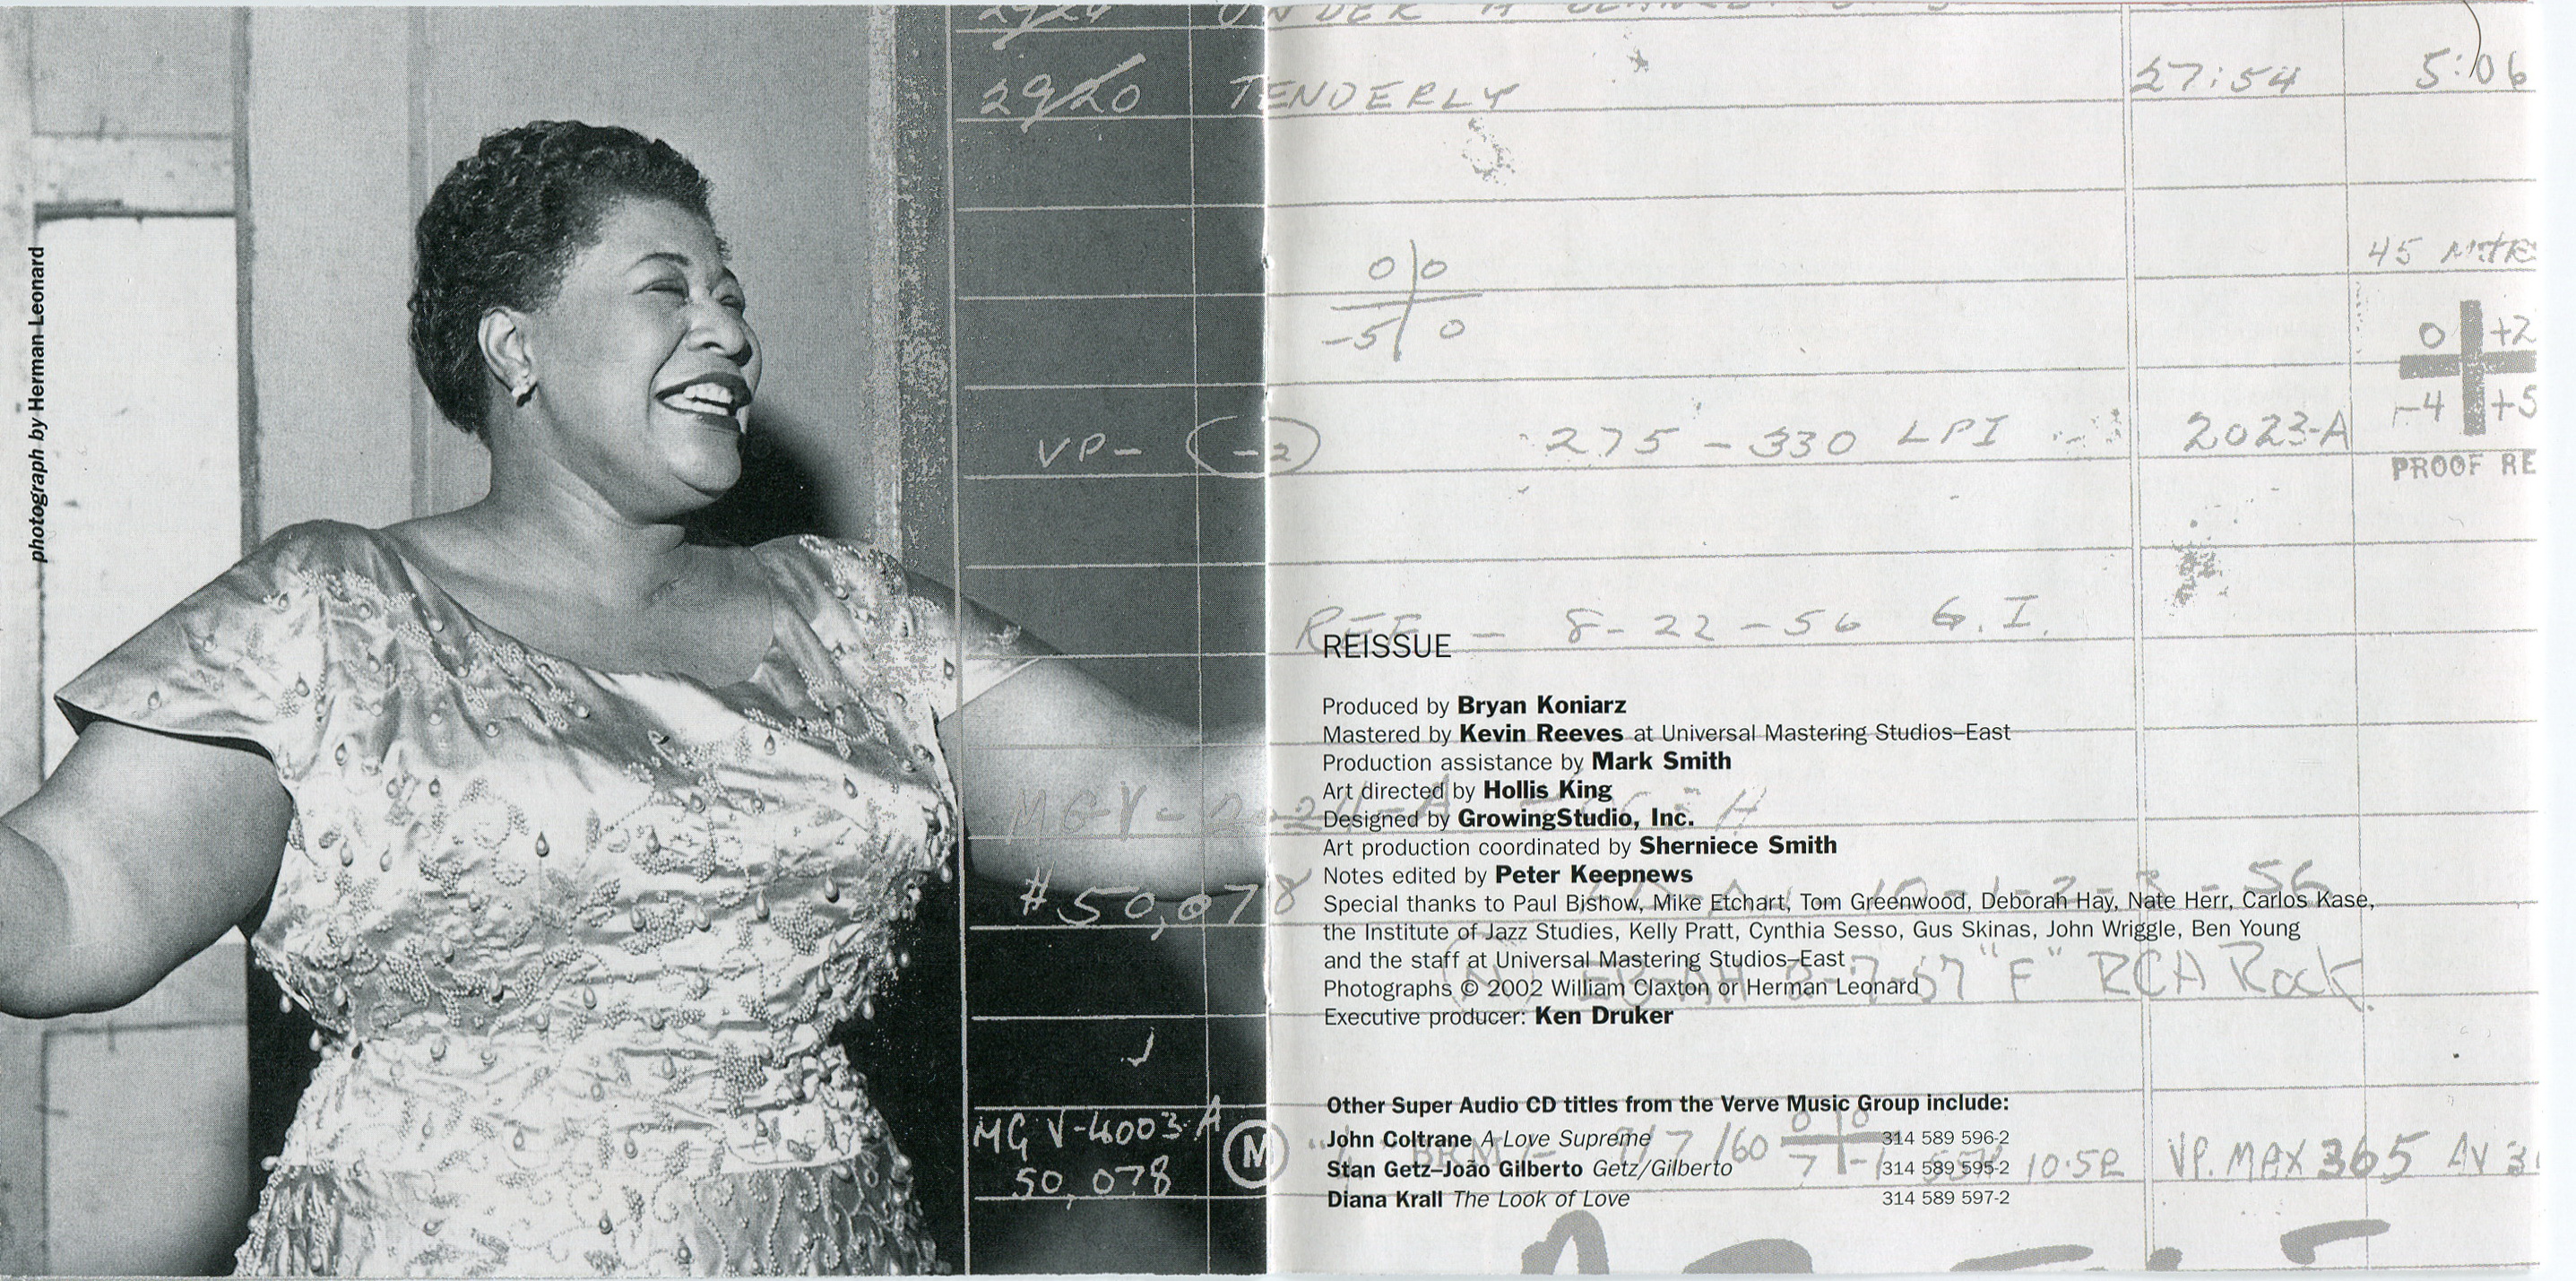 photograph by Herman Leonard
2920 TENDERLY 27:54 5:06
45
0 0
-5 0
0 +2
-4 +5
VP- -2 275 - 330 LPI 2023-A
PROOF RE
REF - 8-22-56 G.I.
REISSUE
Produced by Bryan Koniarz
Mastered by Kevin Reeves at Universal Mastering Studios–East
Production assistance by Mark Smith
Art directed by Hollis King
Designed by GrowingStudio, Inc.
Art production coordinated by Sherniece Smith
Notes edited by Peter Keepnews
Special thanks to Paul Bishow, Mike Etchart, Tom Greenwood, Deborah Hay, Nate Herr, Carlos Kase,
the Institute of Jazz Studies, Kelly Pratt, Cynthia Sesso, Gus Skinas, John Wriggle, Ben Young
and the staff at Universal Mastering Studios–East
Photographs © 2002 William Claxton or Herman Leonard
Executive producer: Ken Druker
#50,078
"F" RCA Rock
MG V-4003 A
50,078
M
9/7/60
10-52 VP. MAX 365 AV
Other Super Audio CD titles from the Verve Music Group include:
John Coltrane A Love Supreme 314 589 596-2
Stan Getz–João Gilberto Getz/Gilberto 314 589 595-2
Diana Krall The Look of Love 314 589 597-2